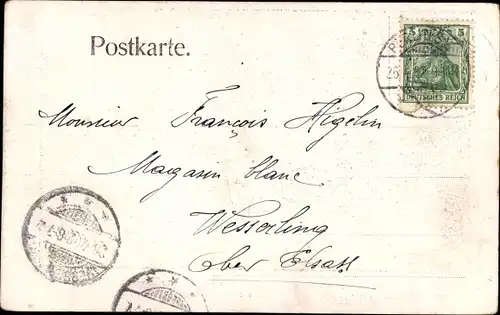 Postkarte.
5 5
DEUTSCHES REICH
Monsieur François Higelin
Magasin blanc
Wesserling
Ober Elsass